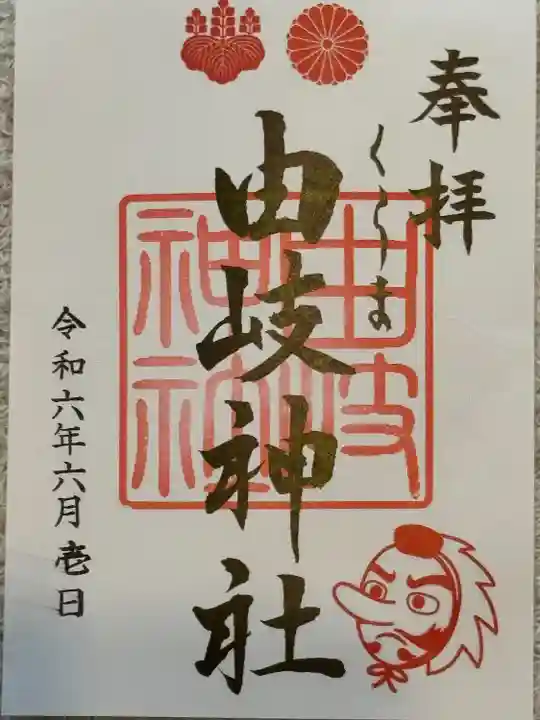 奉拝
くらま
由岐神社
由岐神社
令和六年六月壱日